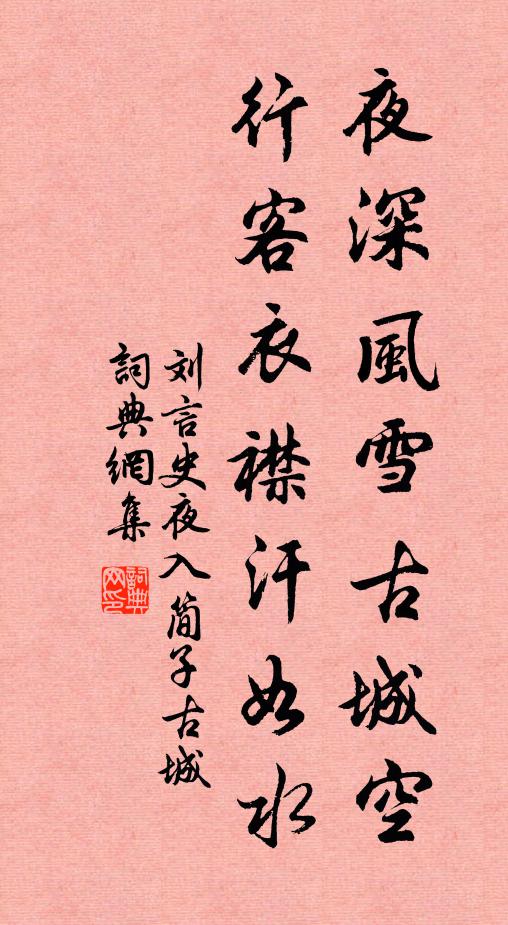 夜深風雪古城空
行客衣襟汗如水
刘言史夜入简子古城
詞典網集
詞典
网印